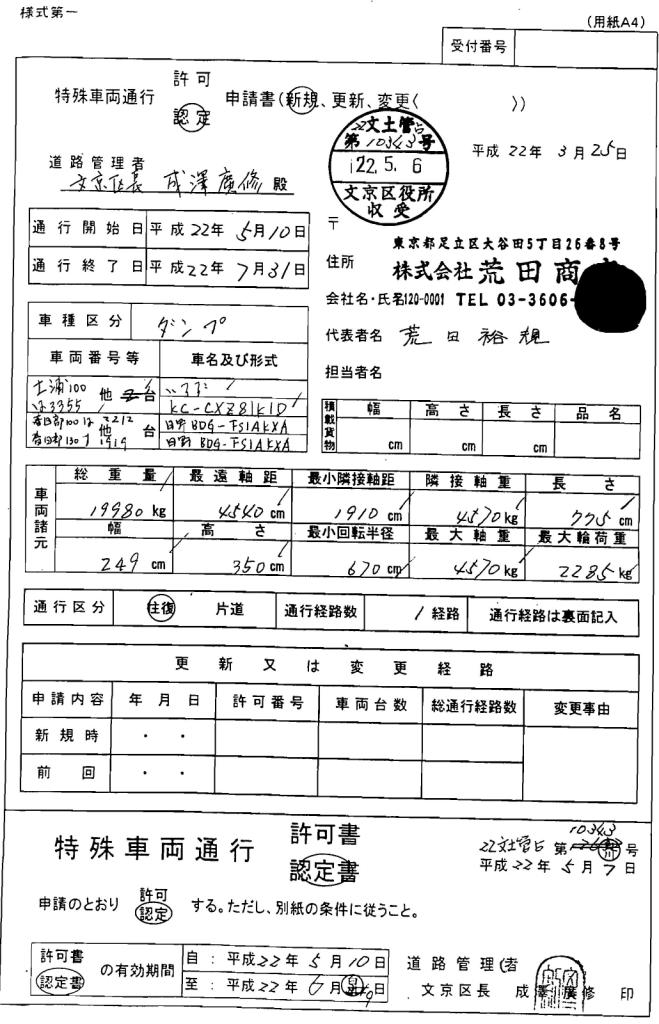 様式第一
(用紙A4)
受付番号
特殊車両通行 許可 認定 申請書(新規、更新、変更( ))
文土管占
第10343号
22.5.6
文京区役所
収受
平成22年3月25日
道路管理者
文京区長 成澤廣修 殿
通行開始日 平成22年5月10日
通行終了日 平成22年7月31日
〒
東京都足立区大谷田5丁目26番8号
住所 株式会社 荒田商
会社名・氏名 120-0001 TEL 03-3606-
代表者名 荒田裕規
担当者名
車種区分 ダンプ
車両番号等 車名及び形式
土浦100 は3355 他 台 いすゞ KC-CXZ81K1D
春日部100は2212 他 台 日野 BDG-FS1AKXA
春日部130す1919 日野 BDG-FS1AKXA
積載貨物 幅 高さ 長さ 品名
cm cm cm
車両諸元
総重量 最遠軸距 最小隣接軸距 隣接軸重 長さ
19980kg 4540cm 1910cm 4570kg 775cm
幅 高さ 最小回転半径 最大軸重 最大輪荷重
249cm 350cm 670cm 4570kg 2285kg
通行区分 往復 片道 通行経路数 1経路 通行経路は裏面記入
更新又は変更経路
申請内容 年月日 許可番号 車両台数 総通行経路数 変更事由
新規時 ・ ・
前回 ・ ・
特殊車両通行 許可書 認定書
10343
22文土管占 第 号
平成22年5月7日
申請のとおり 許可 認定 する。ただし、別紙の条件に従うこと。
許可書 認定書 の有効期間
自:平成22年5月10日
至:平成22年6月 日
道路管理者
文京区長 成澤廣修 印